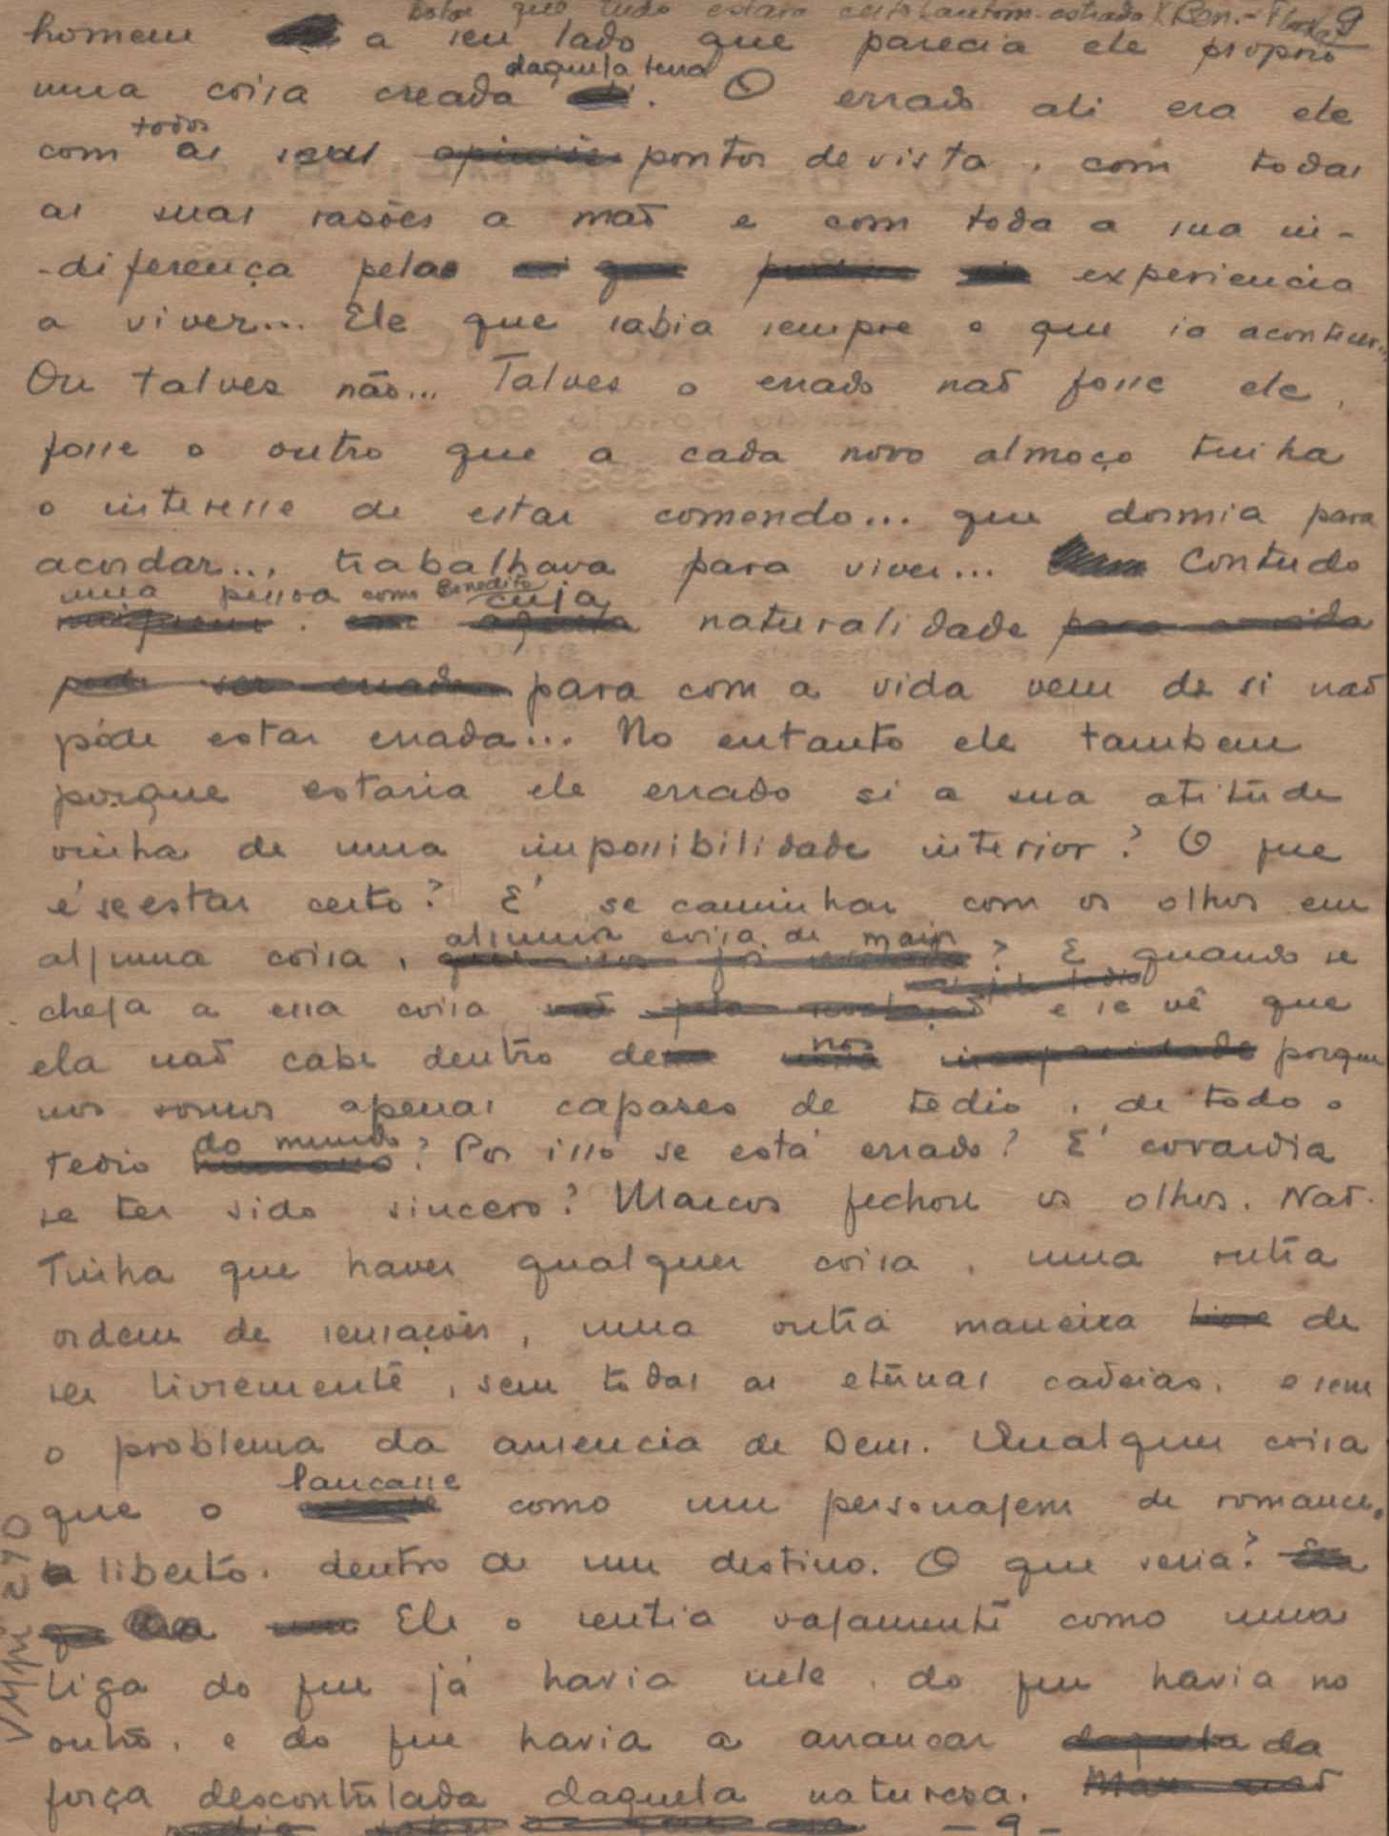 homem a seu lado que parecia ele proprio
uma coisa creada daquela terra. O errado ali era ele
com todos os seus pontos de vista, com todas
as suas rasões a maõ e com toda a sua in-
-diferença pela experiencia
a viver... Ele que sabia sempre o que ia acontecer...
Ou talves não... Talves o errado naõ fosse ele,
fosse o outro que a cada novo almoço tinha
o interesse de estar comendo... que dormia para
acordar..., trabalhava para viver... Contudo
uma pessoa como Benedito cuja naturalidade
para com a vida vem de si naõ
póde estar errada... No entanto ele tambem
porque estaria ele errado si a sua atitude
vinha de uma impossibilidade interior? O que
é se estar certo? É se caminhar com os olhos em
alguma coisa, alguma coisa de mais? E quando se
chega a essa coisa e se vê que
ela naõ cabe dentro de nos porque
nos somos apenas capases de tedio, de todo o
tedio do mundo? Por isso se está errado? É covardia
se ter sido sincero? Marcos fechou os olhos. Naõ.
Tinha que haver qualquer coisa, uma outra
ordem de sensações, uma outra maneira de
ser livremente, sem todas as eternas cadeias, e sem
o problema da ausencia de Deus. Qualquer coisa
que o lancasse como um personagem de romance.
liberto, dentro de um destino. O que seria?
Ele o sentia vagamente como uma
liga do que já havia nele, do que havia no
outro, e do que havia a arrancar da
força descontrolada daquela naturesa.
- 9 -
VMPi 290